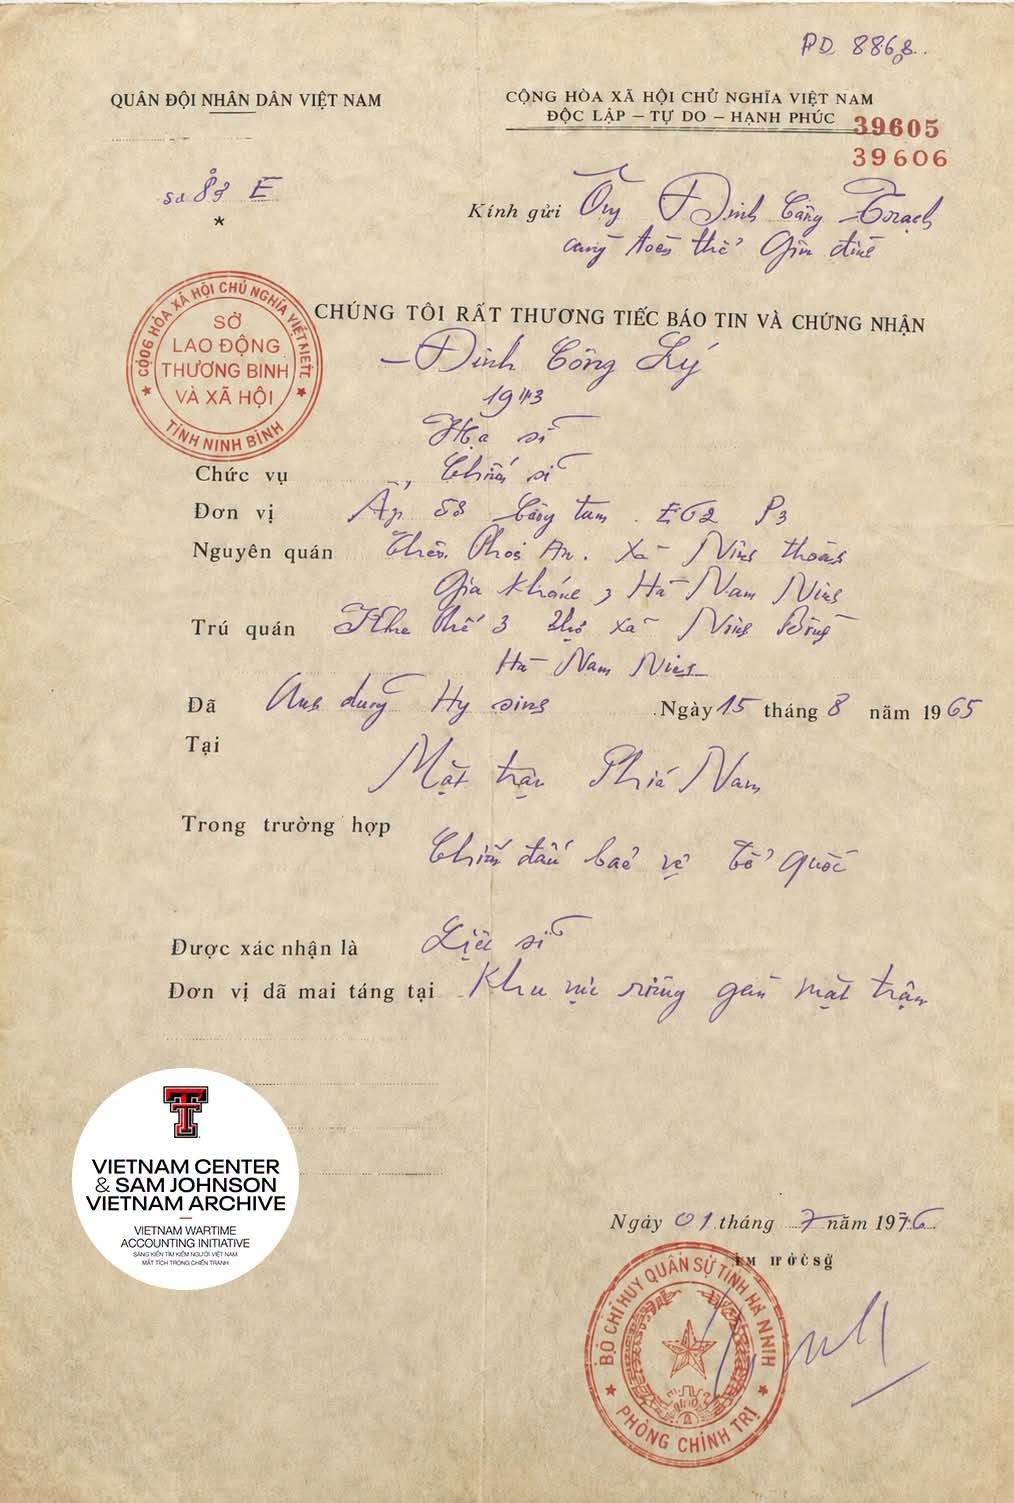 PD 8868
QUÂN ĐỘI NHÂN DÂN VIỆT NAM
CỘNG HÒA XÃ HỘI CHỦ NGHĨA VIỆT NAM
ĐỘC LẬP – TỰ DO – HẠNH PHÚC
39605
39606
Số 83 E
*
Kính gửi Ông Đinh Công Trạch
cùng toàn thể Gia đình
CHÚNG TÔI RẤT THƯƠNG TIẾC BÁO TIN VÀ CHỨNG NHẬN
SỞ
LAO ĐỘNG
THƯƠNG BINH
VÀ XÃ HỘI
TỈNH NINH BÌNH
Đinh Công Lý
1943
Hạ sĩ
Chức vụ Chiến sĩ
Đơn vị Ấp 58
Nguyên quán An. Xã Ninh
Gia Khánh Hà Nam Ninh
Trú quán 3 xã Ninh
Hà Nam Ninh
Đã Anh dũng Hy sinh Ngày 15 tháng 8 năm 1965
Tại
Mặt trận Phía Nam
Trong trường hợp
Chiến đấu bảo vệ Tổ quốc
Được xác nhận là Liệt sĩ
Đơn vị đã mai táng tại Khu vực riêng gần mặt trận
VIETNAM CENTER
& SAM JOHNSON
VIETNAM ARCHIVE
VIETNAM WARTIME
ACCOUNTING INITIATIVE
SÁNG KIẾN TÌM KIẾM NGƯỜI VIỆT NAM
MẤT TÍCH TRONG CHIẾN TRANH
Ngày 01 tháng 7 năm 1976
BỘ CHỈ HUY QUÂN SỰ TỈNH HÀ
PHÒNG CHÍNH TRỊ